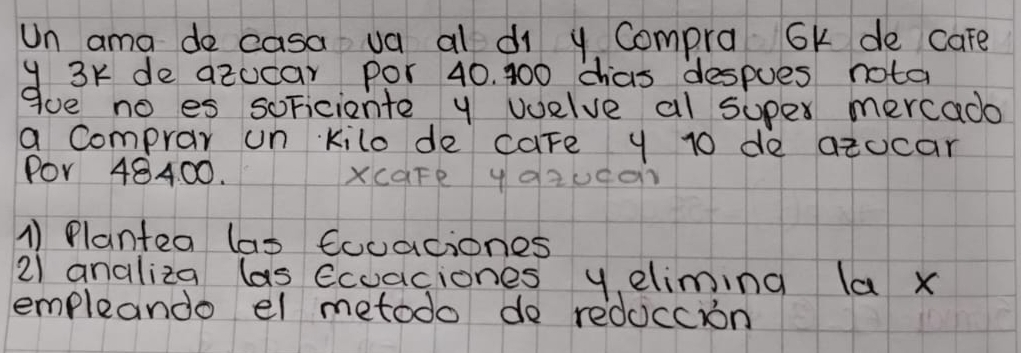 Un ama de casa va al d1 y Compra 6K de cafe
y 3K de azucar por 40.900 dias despues nota
que no es suficiente y vuelve al super mercado
a Comprar un Kilo de cafe y 10 de azucar
Por 48400. x cafe y azucar
1) Plantea las Ecuaciones
2) analiza las ecuaciones y elimina la x
empleando el metodo de reducción